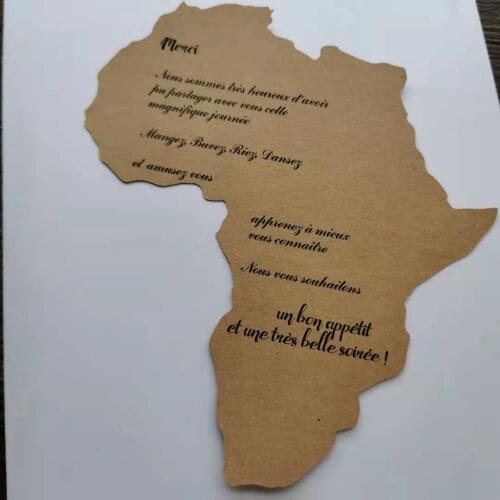 Merci
Nous sommes très heureux d'avoir
pu partager avec vous cette
magnifique journée
Mangez, Buvez, Riez, Dansez
et amusez vous
apprenez à mieux
vous connaître
Nous vous souhaitons
un bon appétit
et une très belle soirée !